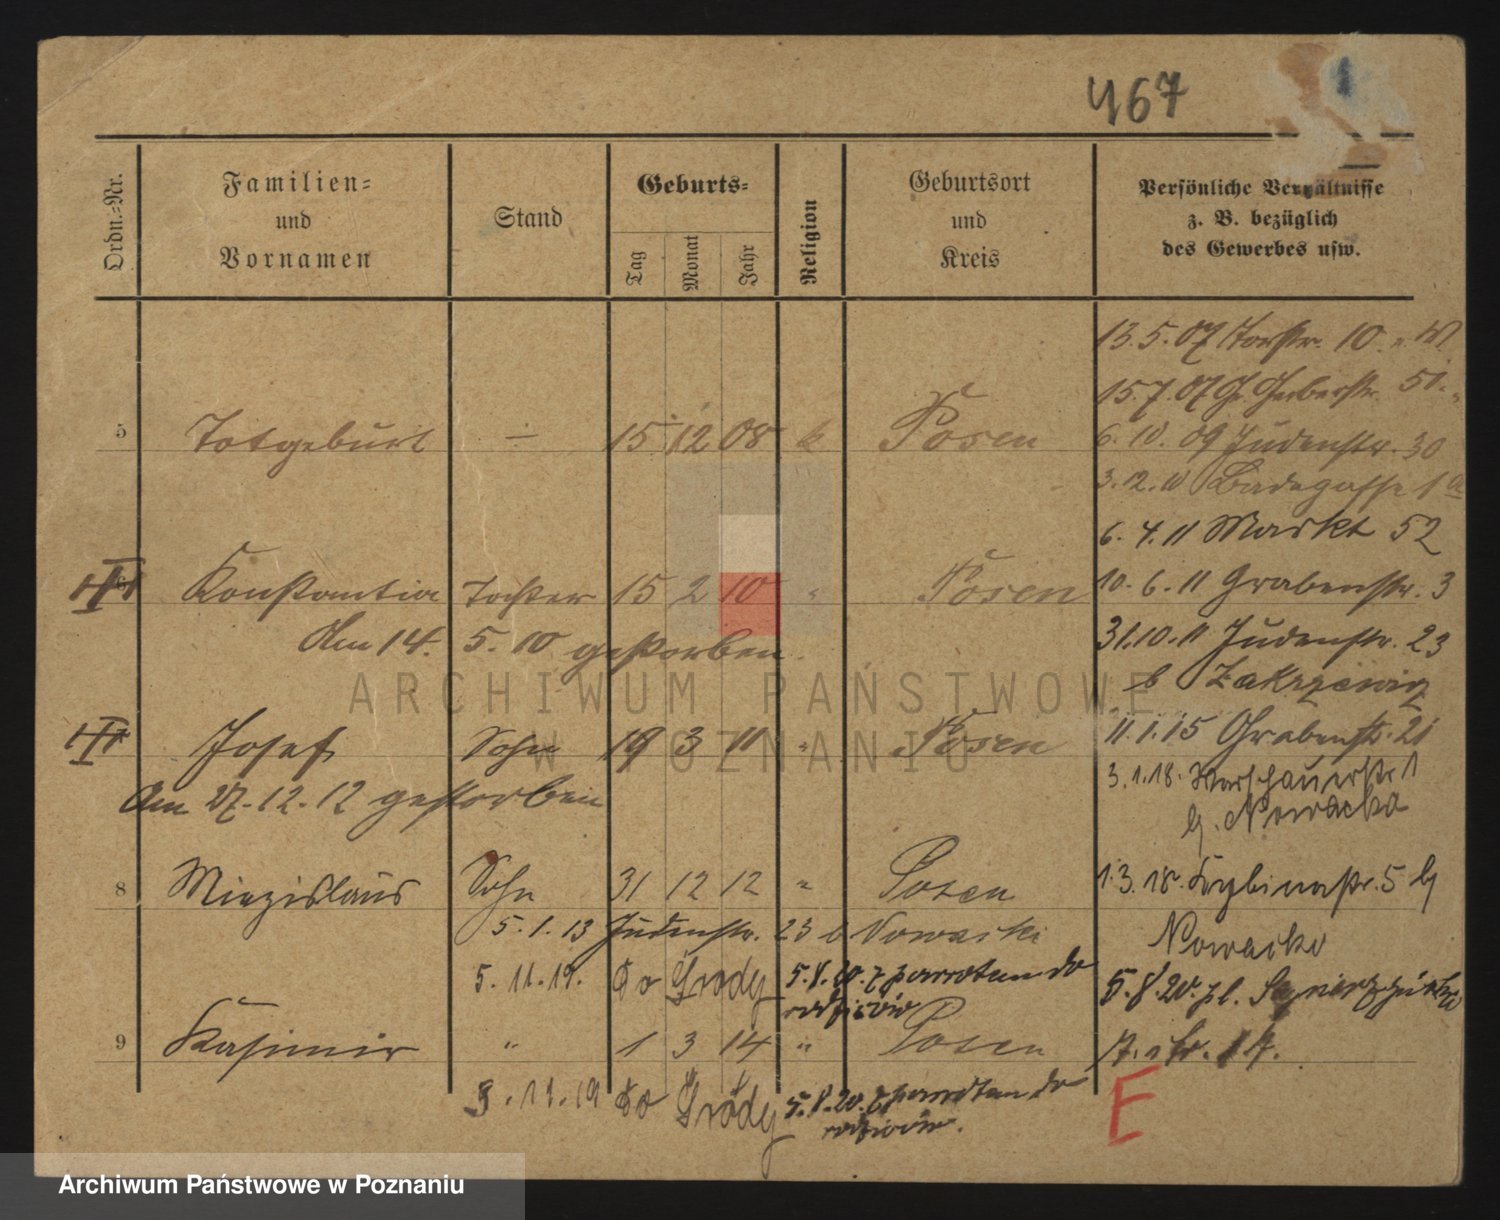 467
1
Ordn.=Nr.
Familien=
und
Vornamen
Stand
Geburts=
Tag
Monat
Jahr
Religion
Geburtsort
und
Kreis
Persönliche Verhältnisse
z. B. bezüglich
des Gewerbes usw.
13.5.07 Torstr. 10
15.7.07 Gr. Gerberstr. 51
5 Totgeburt – 15 12 08 k Posen
6.10.09 Judenstr. 30
3.12.10 Badegasse 1a
6.4.11 Markt 52
6 Konstantia Tochter 15 2 10 " Posen
10.6.11 Grabenstr. 3
Am 14. 5. 10 gestorben.
31.10.11 Judenstr. 23
b Zakrzewicz
Josef Sohn 19 3 11 " Posen
11.1.15 Grabenstr. 21
3.1.18. Warschauerstr 1
Am 27.12.12 gestorben
b. Nowacka
8 Miezislaus Sohn 31 12 12 " Posen
1.3.18. Cybinastr. 5 b
5.1.13 Judenstr. 23 b Nowacki
Nowacka
5.11.19. do Grodz 5.8.20. z powrotem do
rodziców
5.8.20. pl.
9 Kasimir " 1 3 14 " Posen
17.
3.11.19 do Grodz 5.8.20. z powrotem do
rodziców.
E
ARCHIWUM PAŃSTWOWE
W POZNANIU
Archiwum Państwowe w Poznaniu